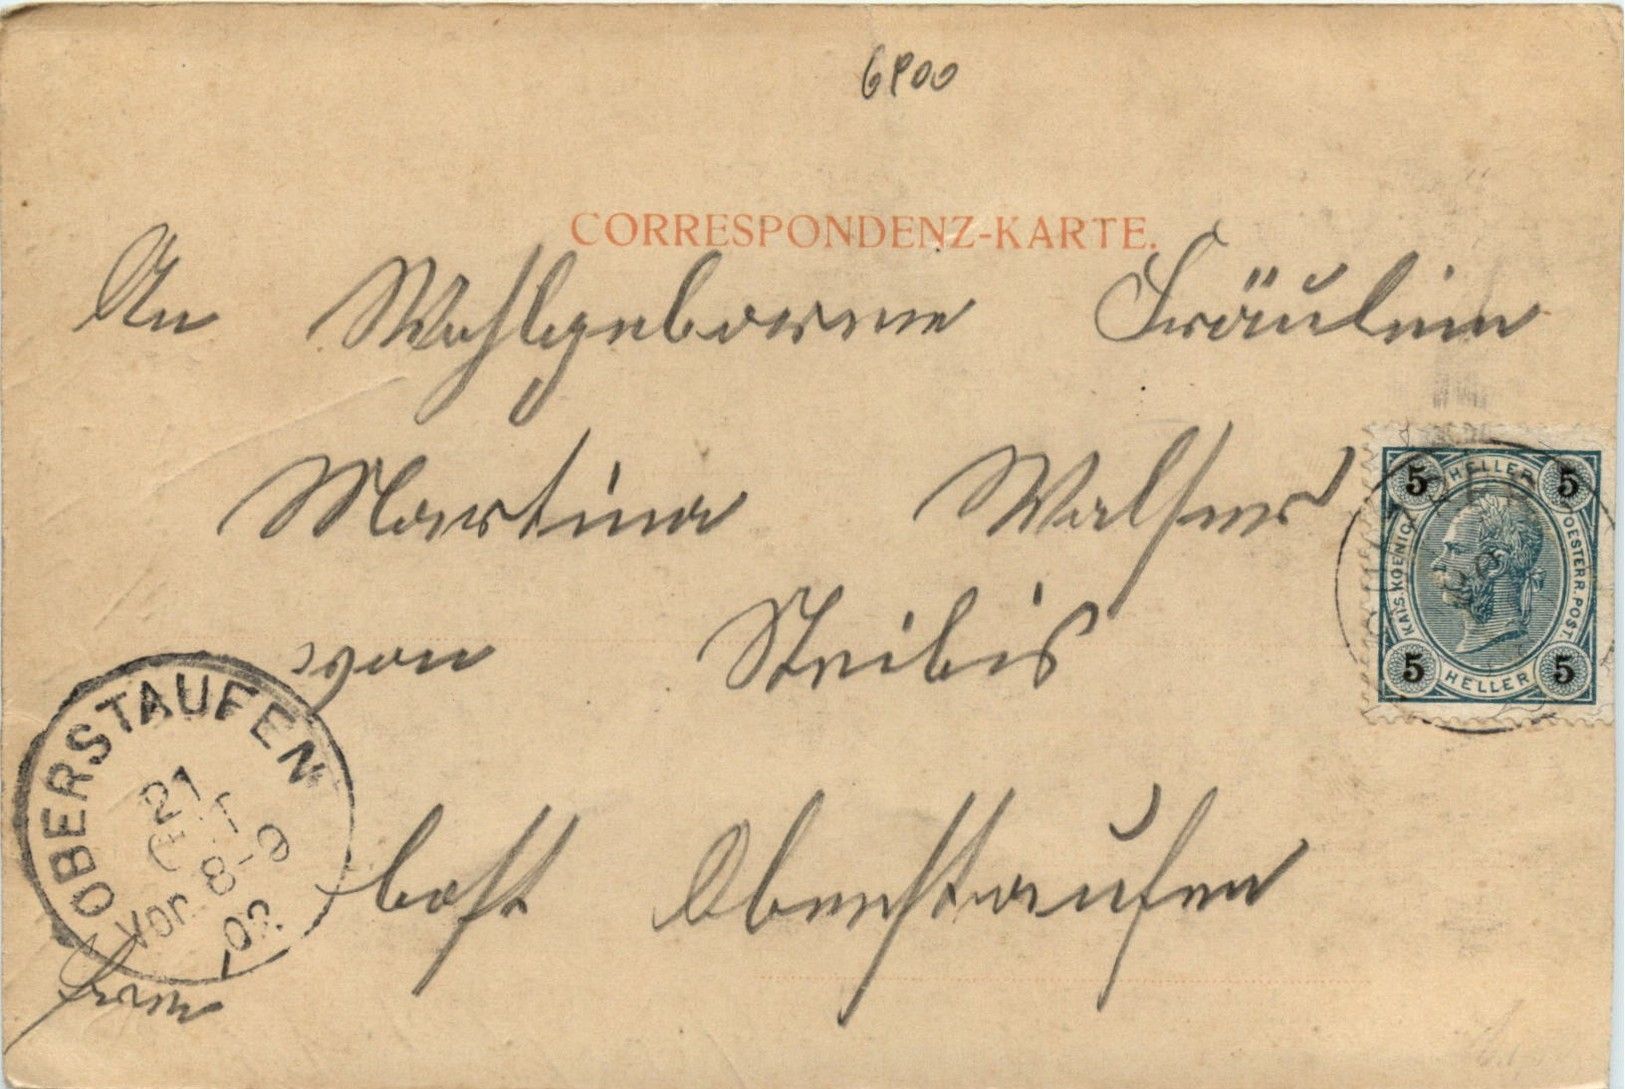 6900
CORRESPONDENZ-KARTE.
An Wohlgeborene Fräulein
Martina Walser
von Steibis
Post Oberstaufen
5 HELLER 5
KAIS. KOENIGL. OESTERR. POST.
5 HELLER 5
OBERSTAUFEN
21
Vor. 8-9
02